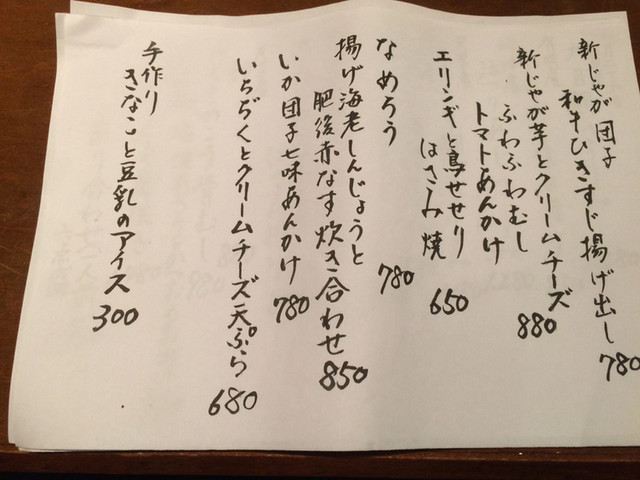 新じゃが団子
和牛ひきすじ揚げ出し 780
新じゃが芋とクリームチーズ
ふわふわむし
トマトあんかけ 880
エリンギと鳥せせり
はさみ焼 650
なめろう 780
揚げ海老しんじょうと
肥後赤なす炊き合わせ 850
いか団子七味あんかけ 780
いちぢくとクリームチーズ天ぷら 680
手作り
きなこと豆乳のアイス 300